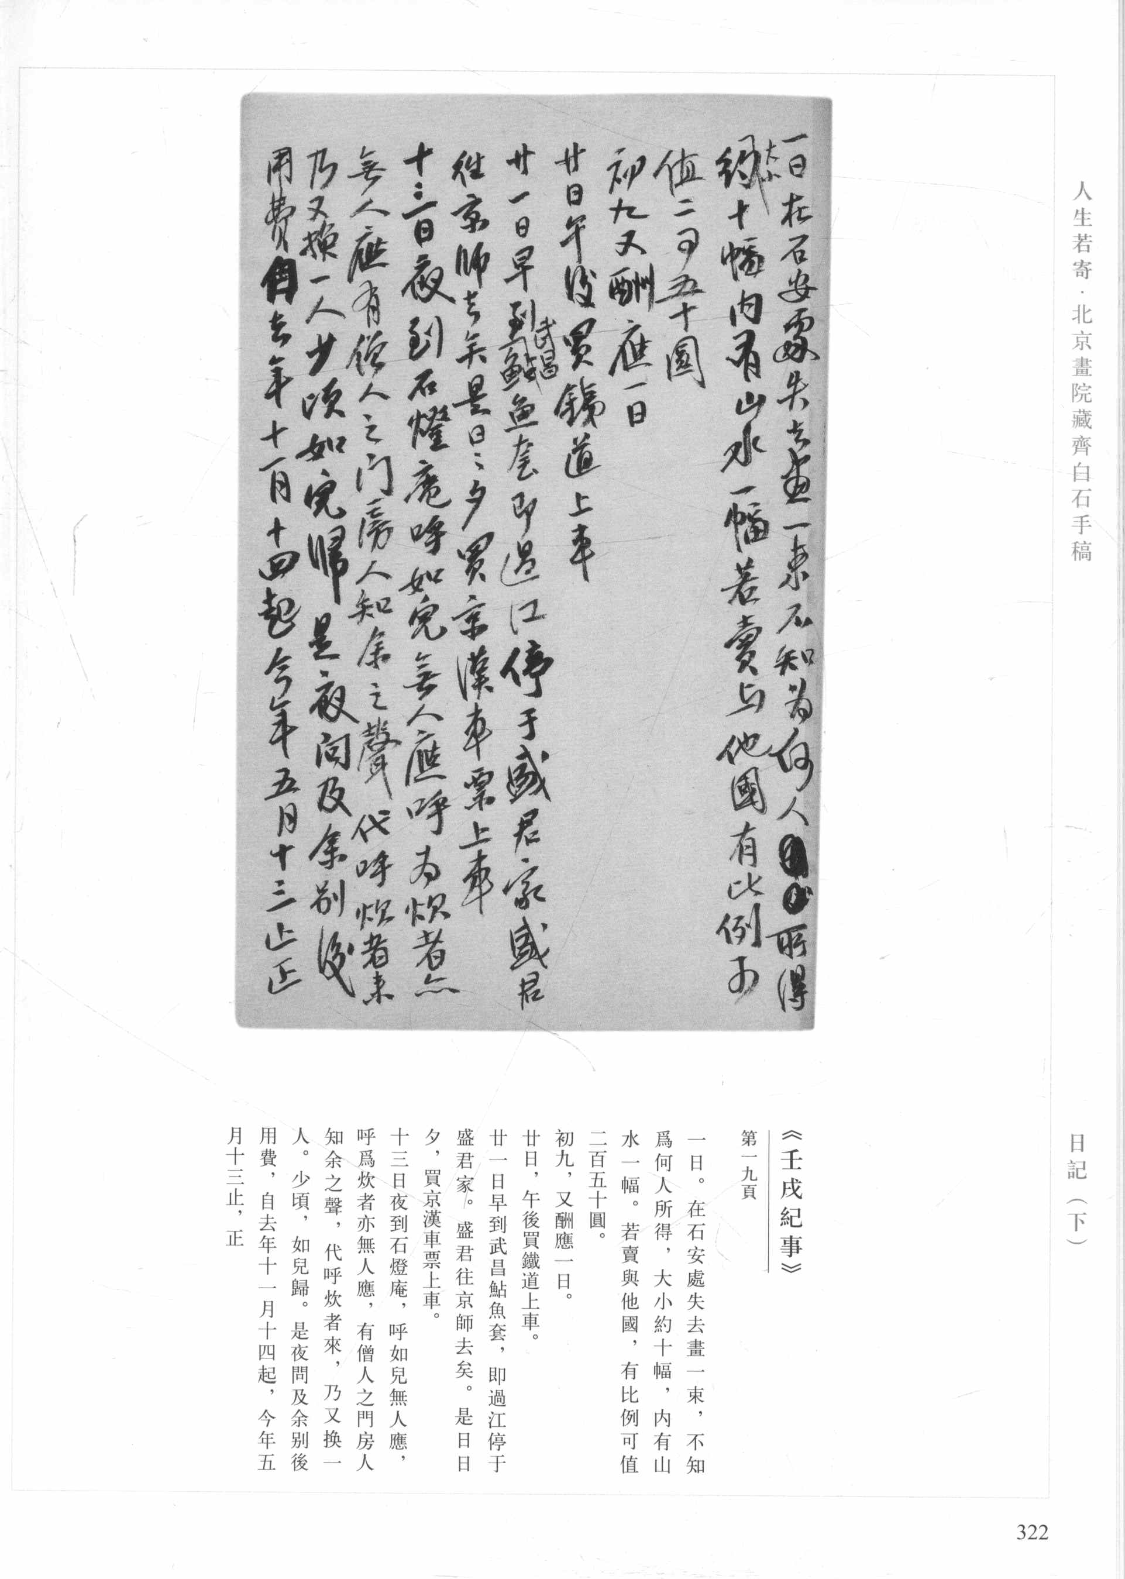 人生若寄·北京畫院藏齊白石手稿
日記（下）
一日在石安處失去畫一束不知為何人所得
大小
約十幅内有山水一幅若賣与他國有比例可
值二百五十圓
初九又酬應一日
廿日午後買鐵道上車
武昌
廿一日早到鮎魚套即過江停于盛君家盛君
往京師去矣是日日夕買京漢車票上車
十三日夜到石燈庵呼如兒無人應呼為炊者亦
無人應有僧人之门房人知余之聲代呼炊者来
乃又換一人少頃如兒歸是夜问及余别後
用費自去年十一月十四起今年五月十三止正
《壬戌紀事》
第一九頁
一日。在石安處失去畫一束，不知
爲何人所得，大小約十幅，内有山
水一幅。若賣與他國，有比例可值
二百五十圓。
初九，又酬應一日。
廿日，午後買鐵道上車。
廿一日早到武昌鮎魚套，即過江停于
盛君家。盛君往京師去矣。是日日
夕，買京漢車票上車。
十三日夜到石燈庵，呼如兒無人應，
呼爲炊者亦無人應，有僧人之門房人
知余之聲，代呼炊者來，乃又换一
人。少頃，如兒歸。是夜問及余别後
用費，自去年十一月十四起，今年五
月十三止，正
322